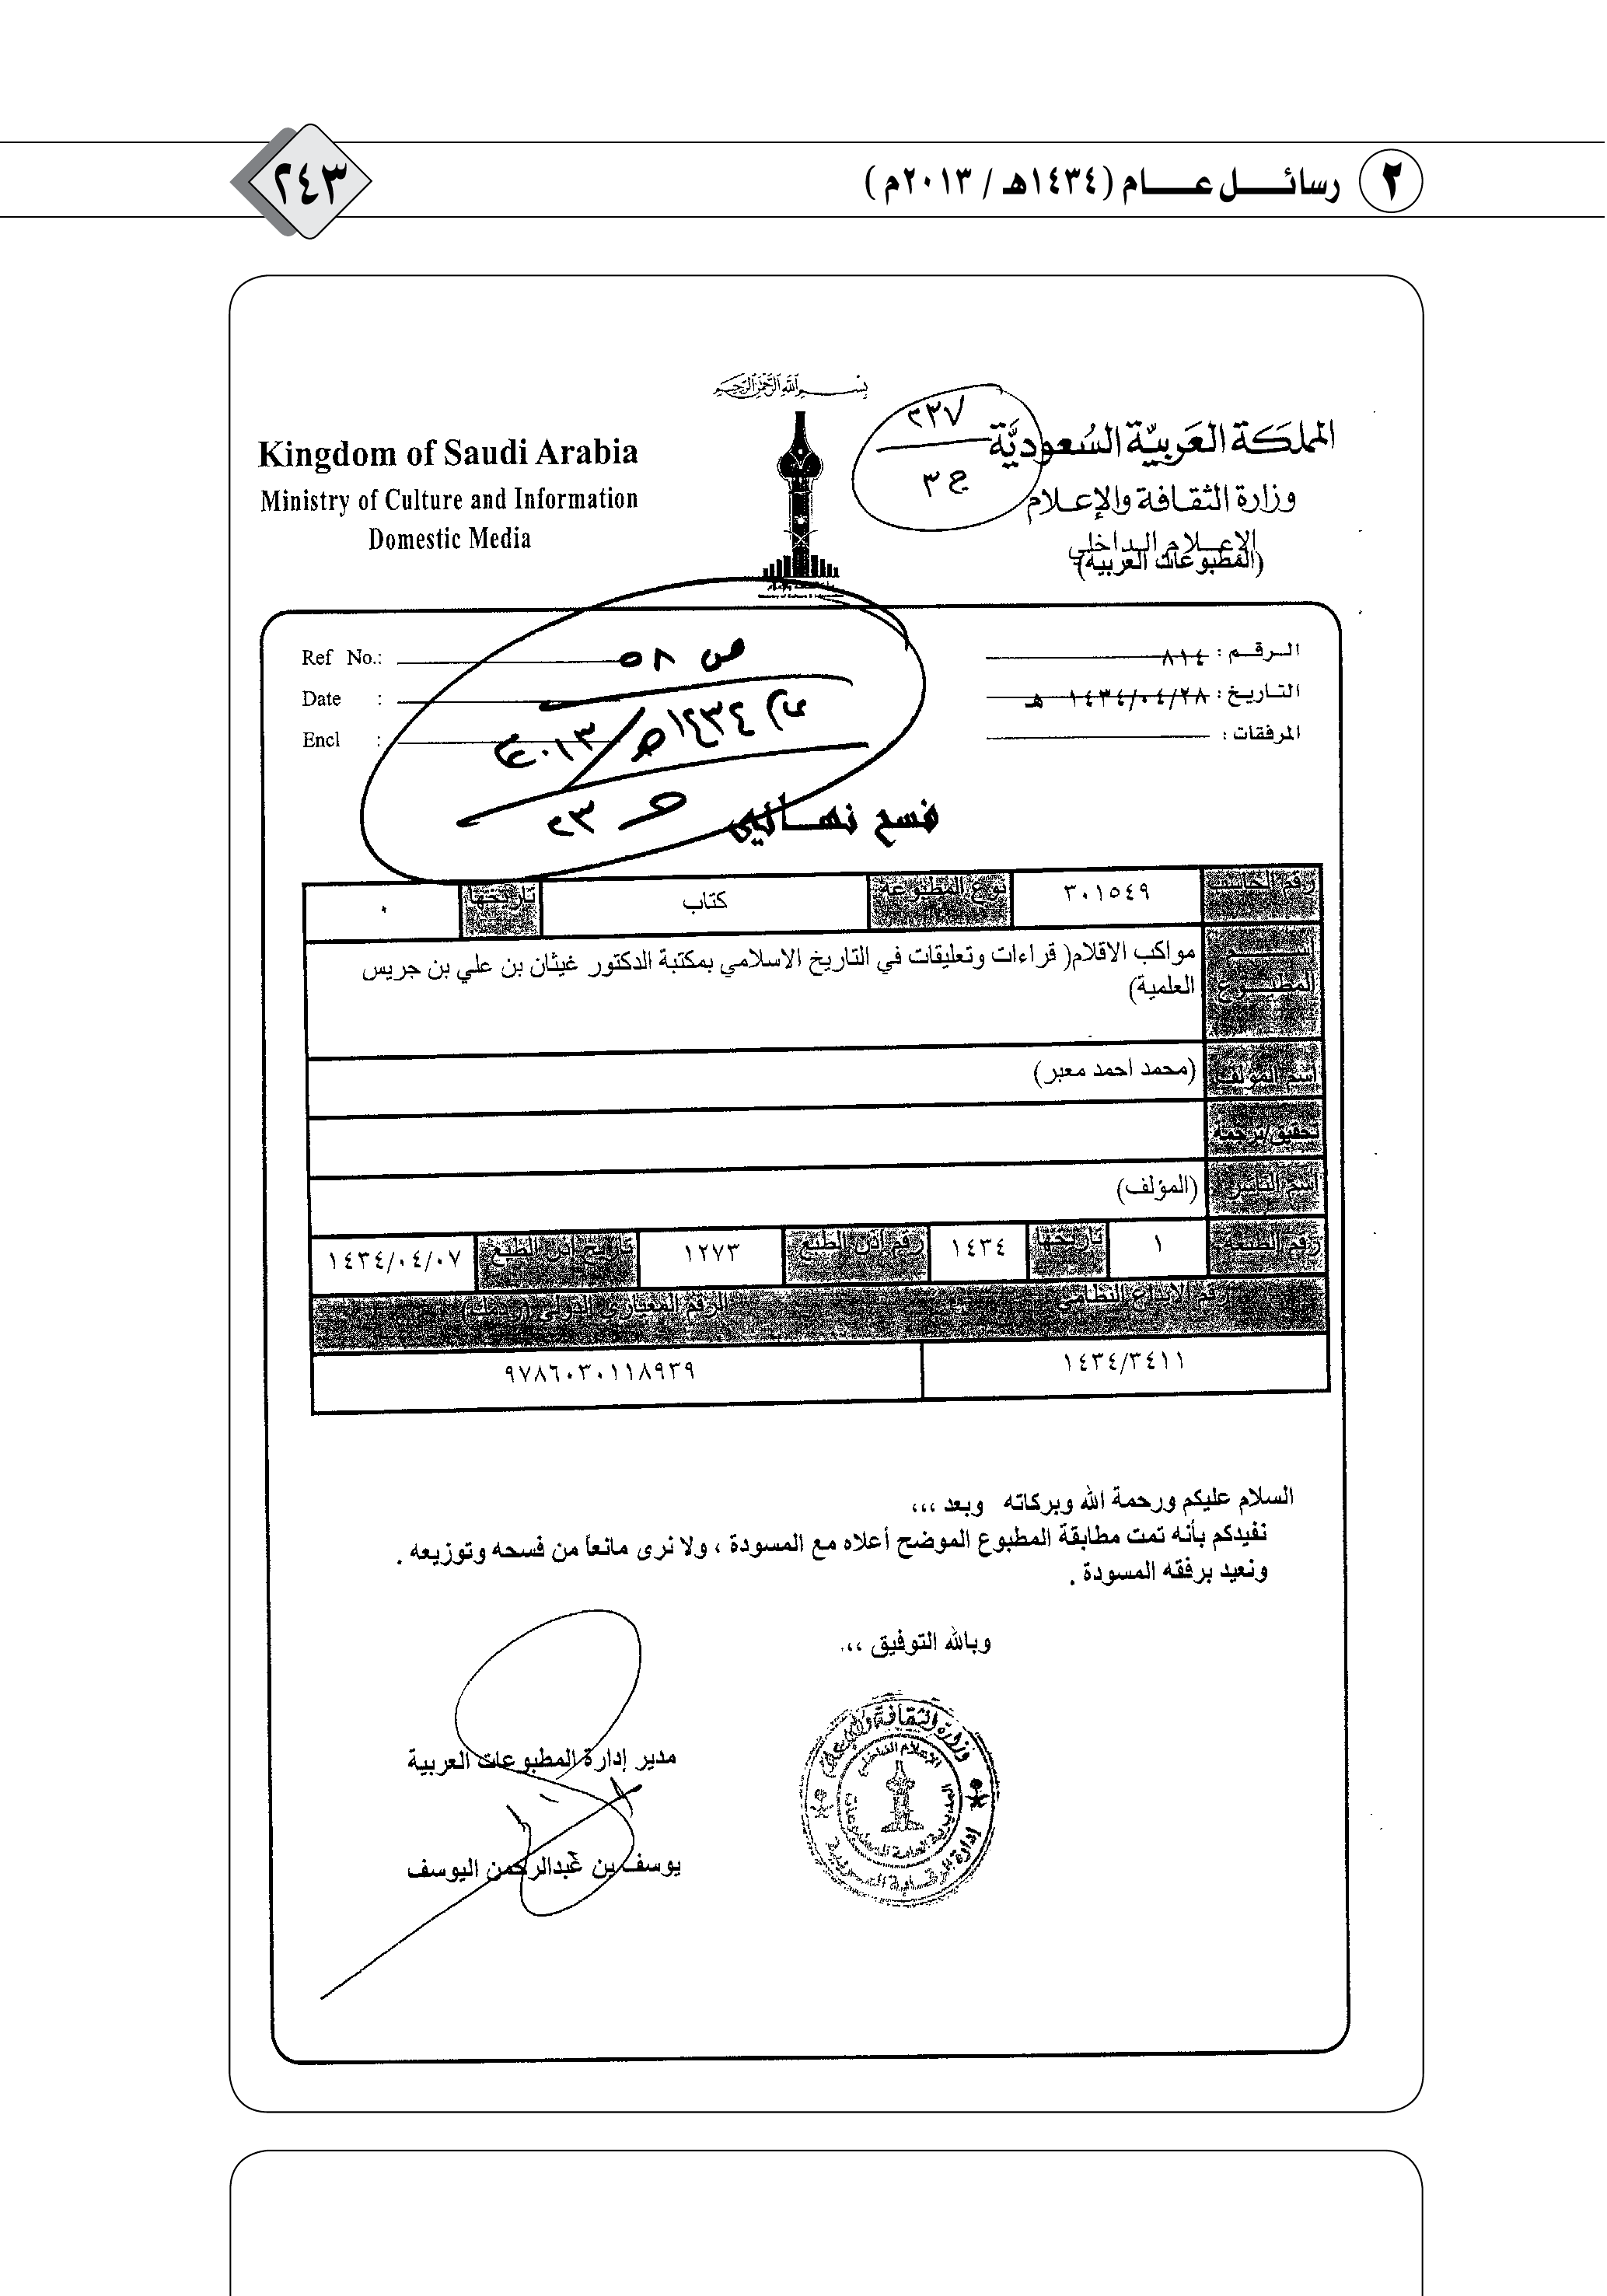 ٢ رسائــــل عــــام (١٤٣٤هـ / ٢٠١٣م)
٢٤٣
بسم الله الرحمن الرحيم
المملكة العربية السعودية
وزارة الثقافة والإعلام
الإعلام الداخلي
(المطبوعات العربية)
٢٣٧
ج ٣
Kingdom of Saudi Arabia
Ministry of Culture and Information
Domestic Media
Ministry of Culture & Information
الرقم : ٨١٤
التاريخ : ١٤٣٤/٠٤/٢٨ هـ
المرفقات :
Ref No.:
Date :
Encl :
ص ٥٨
عام ١٤٣٤هـ/٢٠١٣م
٢٣
فسح نهائي
رقم الحاسب ٣٠١٥٤٩ نوع المطبوعة كتاب تاريخها ٠
اسم المطبوع مواكب الاقلام( قراءات وتعليقات في التاريخ الاسلامي بمكتبة الدكتور غيثان بن علي بن جريس
العلمية)
اسم المؤلف (محمد احمد معبر)
تحقيق/ترجمة
اسم الناشر (المؤلف)
رقم الطبعة ١ تاريخها ١٤٣٤ رقم اذن الطبع ١٢٧٣ تاريخ اذن الطبع ١٤٣٤/٠٤/٠٧
رقم الايداع النظامي الرقم المعياري الدولي (ردمك)
١٤٣٤/٣٤١١ ٩٧٨٦٠٣٠١١٨٩٣٩
السلام عليكم ورحمة الله وبركاته وبعد ،،،
نفيدكم بأنه تمت مطابقة المطبوع الموضح أعلاه مع المسودة ، ولا نرى مانعاً من فسحه وتوزيعه .
ونعيد برفقه المسودة .
وبالله التوفيق ،،،
مدير إدارة المطبوعات العربية
يوسف بن عبدالرحمن اليوسف
وزارة الثقافة والإعلام
الإعلام الداخلي
المديرية العامة للمطبوعات
إدارة الرقابة العربية